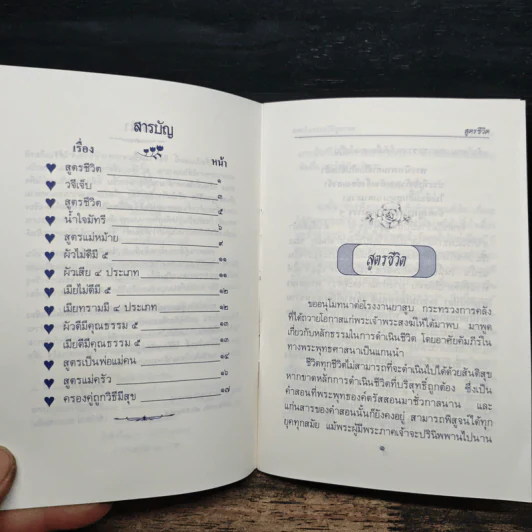 สารบัญ
เรื่อง หน้า
สูตรชีวิต ๑
วจีเจ็บ ๓
สูตรชีวิต ๕
น้ำใจมัทรี ๖
สูตรแม่หม้าย ๙
ผัวไม่ดีมี ๕ ๑๑
ผัวเสีย ๔ ประเภท ๑๑
เมียไม่ดีมี ๕ ๑๒
เมียทรามมี ๔ ประเภท ๑๒
ผัวดีมีคุณธรรม ๕ ๑๓
เมียดีมีคุณธรรม ๕ ๑๓
สูตรเป็นพ่อแม่คน ๑๔
สูตรแม่ครัว ๑๖
ครองคู่ถูกวิธีมีสุข ๑๗
สูตรชีวิต
สูตรชีวิต
ขออนุโมทนาต่อโรงงานยาสูบ กระทรวงการคลัง
ที่ได้ถวายโอกาสแก่พระเจ้าพระสงฆ์ให้ได้มาพบ มาพูด
เกี่ยวกับหลักธรรมในการดำเนินชีวิต โดยอาศัยคัมภีร์ใน
ทางพระพุทธศาสนาเป็นแกนนำ
ชีวิตทุกชีวิตไม่สามารถที่จะดำเนินไปได้ด้วยสันติสุข
หากขาดหลักการดำเนินชีวิตที่บริสุทธิ์ถูกต้อง ซึ่งเป็น
คำสอนที่พระพุทธองค์ตรัสสอนมาชั่วกาลนาน และ
แก่นสารของคำสอนนั้นก็ยังคงอยู่ สามารถพิสูจน์ได้ทุก
ยุคทุกสมัย แม้พระผู้มีพระภาคเจ้าจะปรินิพพานไปนาน
๑